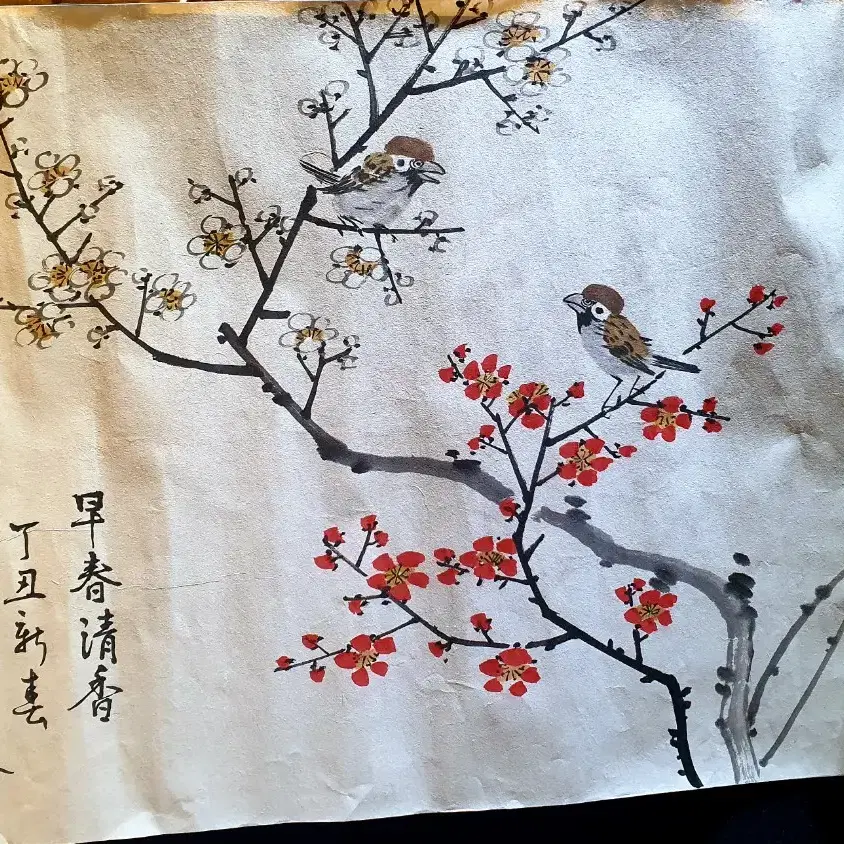 早春清香
丁丑新春